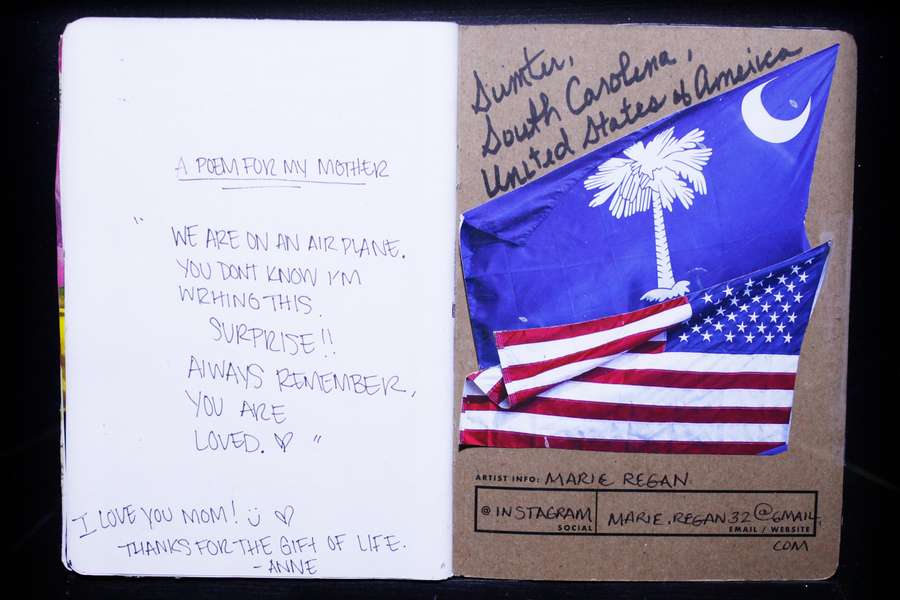 A POEM FOR MY MOTHER
"
WE ARE ON AN AIRPLANE.
YOU DONT KNOW I'M
WRITING THIS.
SURPRISE!!
ALWAYS REMEMBER,
YOU ARE
LOVED. ♡ "
I LOVE YOU MOM! ☺ ♡
THANKS FOR THE GIFT OF LIFE.
-ANNE
Sumter,
South Carolina,
United States of America
ARTIST INFO: MARIE REGAN
@INSTAGRAM
SOCIAL
MARIE.REGAN32@GMAIL.
EMAIL / WEBSITE
COM